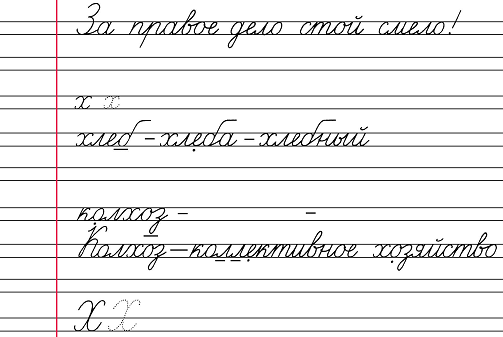 За правое дело стой смело!
х х
хлеб – хлеба – хлебный
колхоз – –
Колхоз – коллективное хозяйство
Х Х